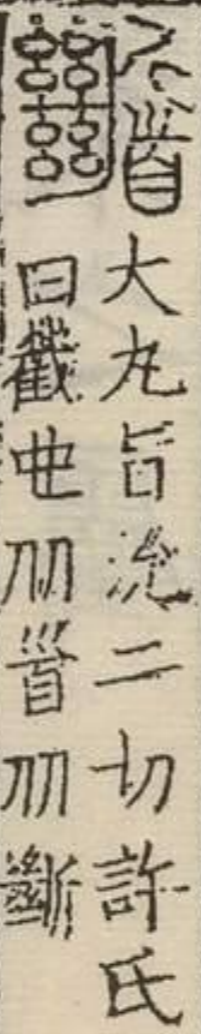 大丸旨沇二切許氏
曰截也从𩠐从斷